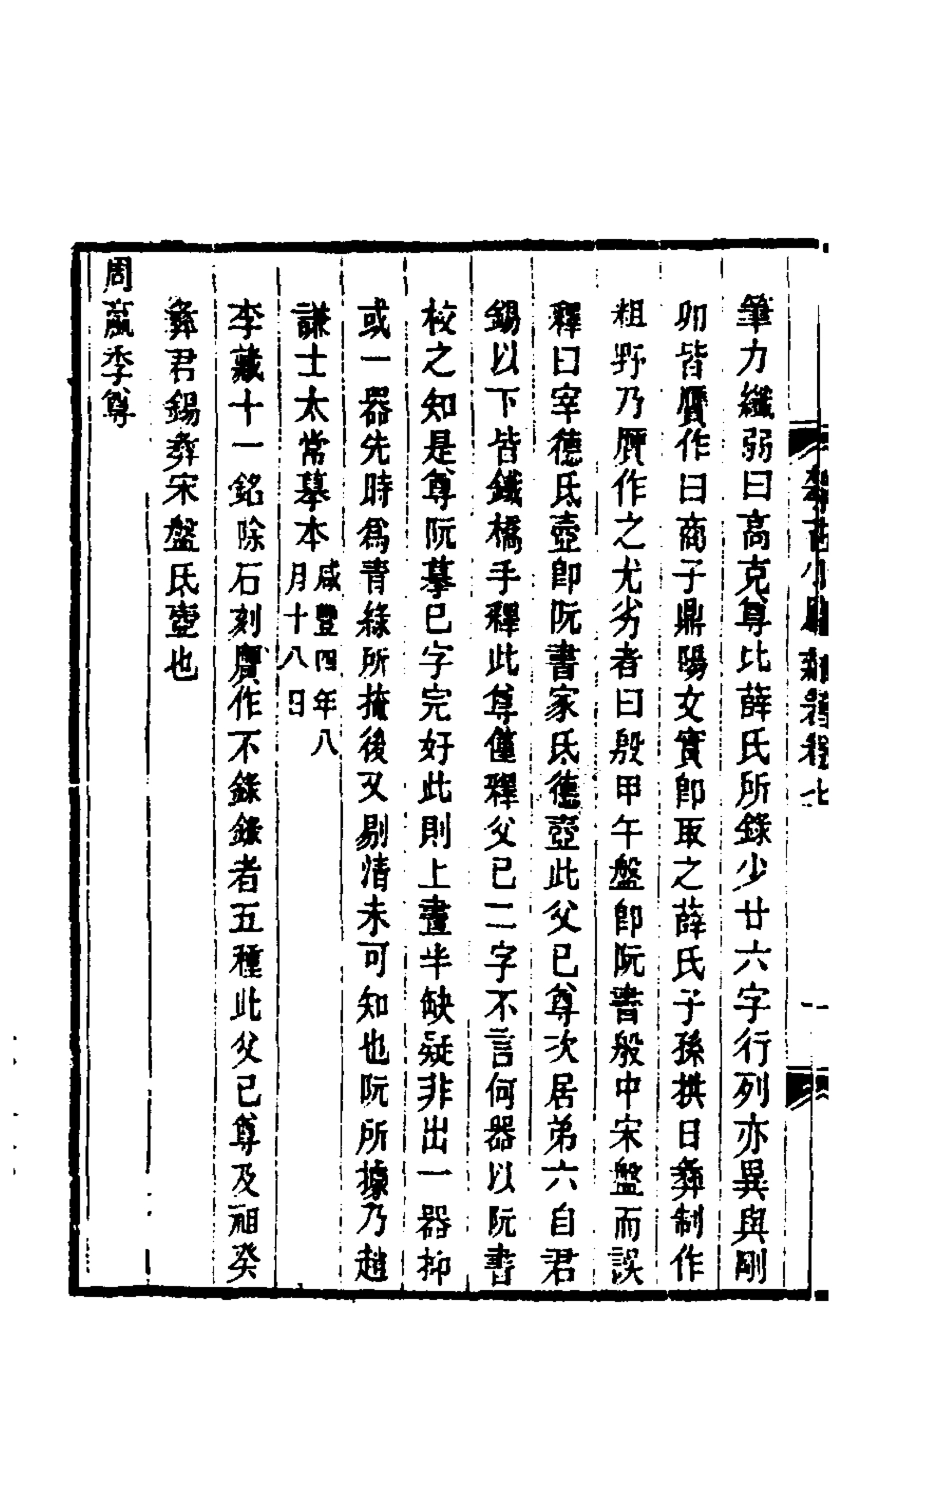 筆力纖弱曰高克尊比薛氏所錄少廿六字行列亦異與剛
卯皆贗作曰商子鼎陽文實卽取之薛氏子孫拱日彝制作
粗野乃贗作之尤劣者曰殷甲午盤卽阮書般中宋盤而誤
釋曰宰德氏壺卽阮書家氏德壺此父已尊次居弟六自君
錫以下皆鐵橋手釋此尊僅釋父已二字不言何器以阮書
校之知是尊阮摹已字完好此則上畫半缺疑非出一器抑
或一器先時爲青綠所掩後又剔清未可知也阮所據乃趙
謙士太常摹本咸豐四年八
月十八日
李藏十一銘除石刻贗作不錄錄者五種此父已尊及祖癸
彝君錫彝宋盤氏壺也
周嬴季尊